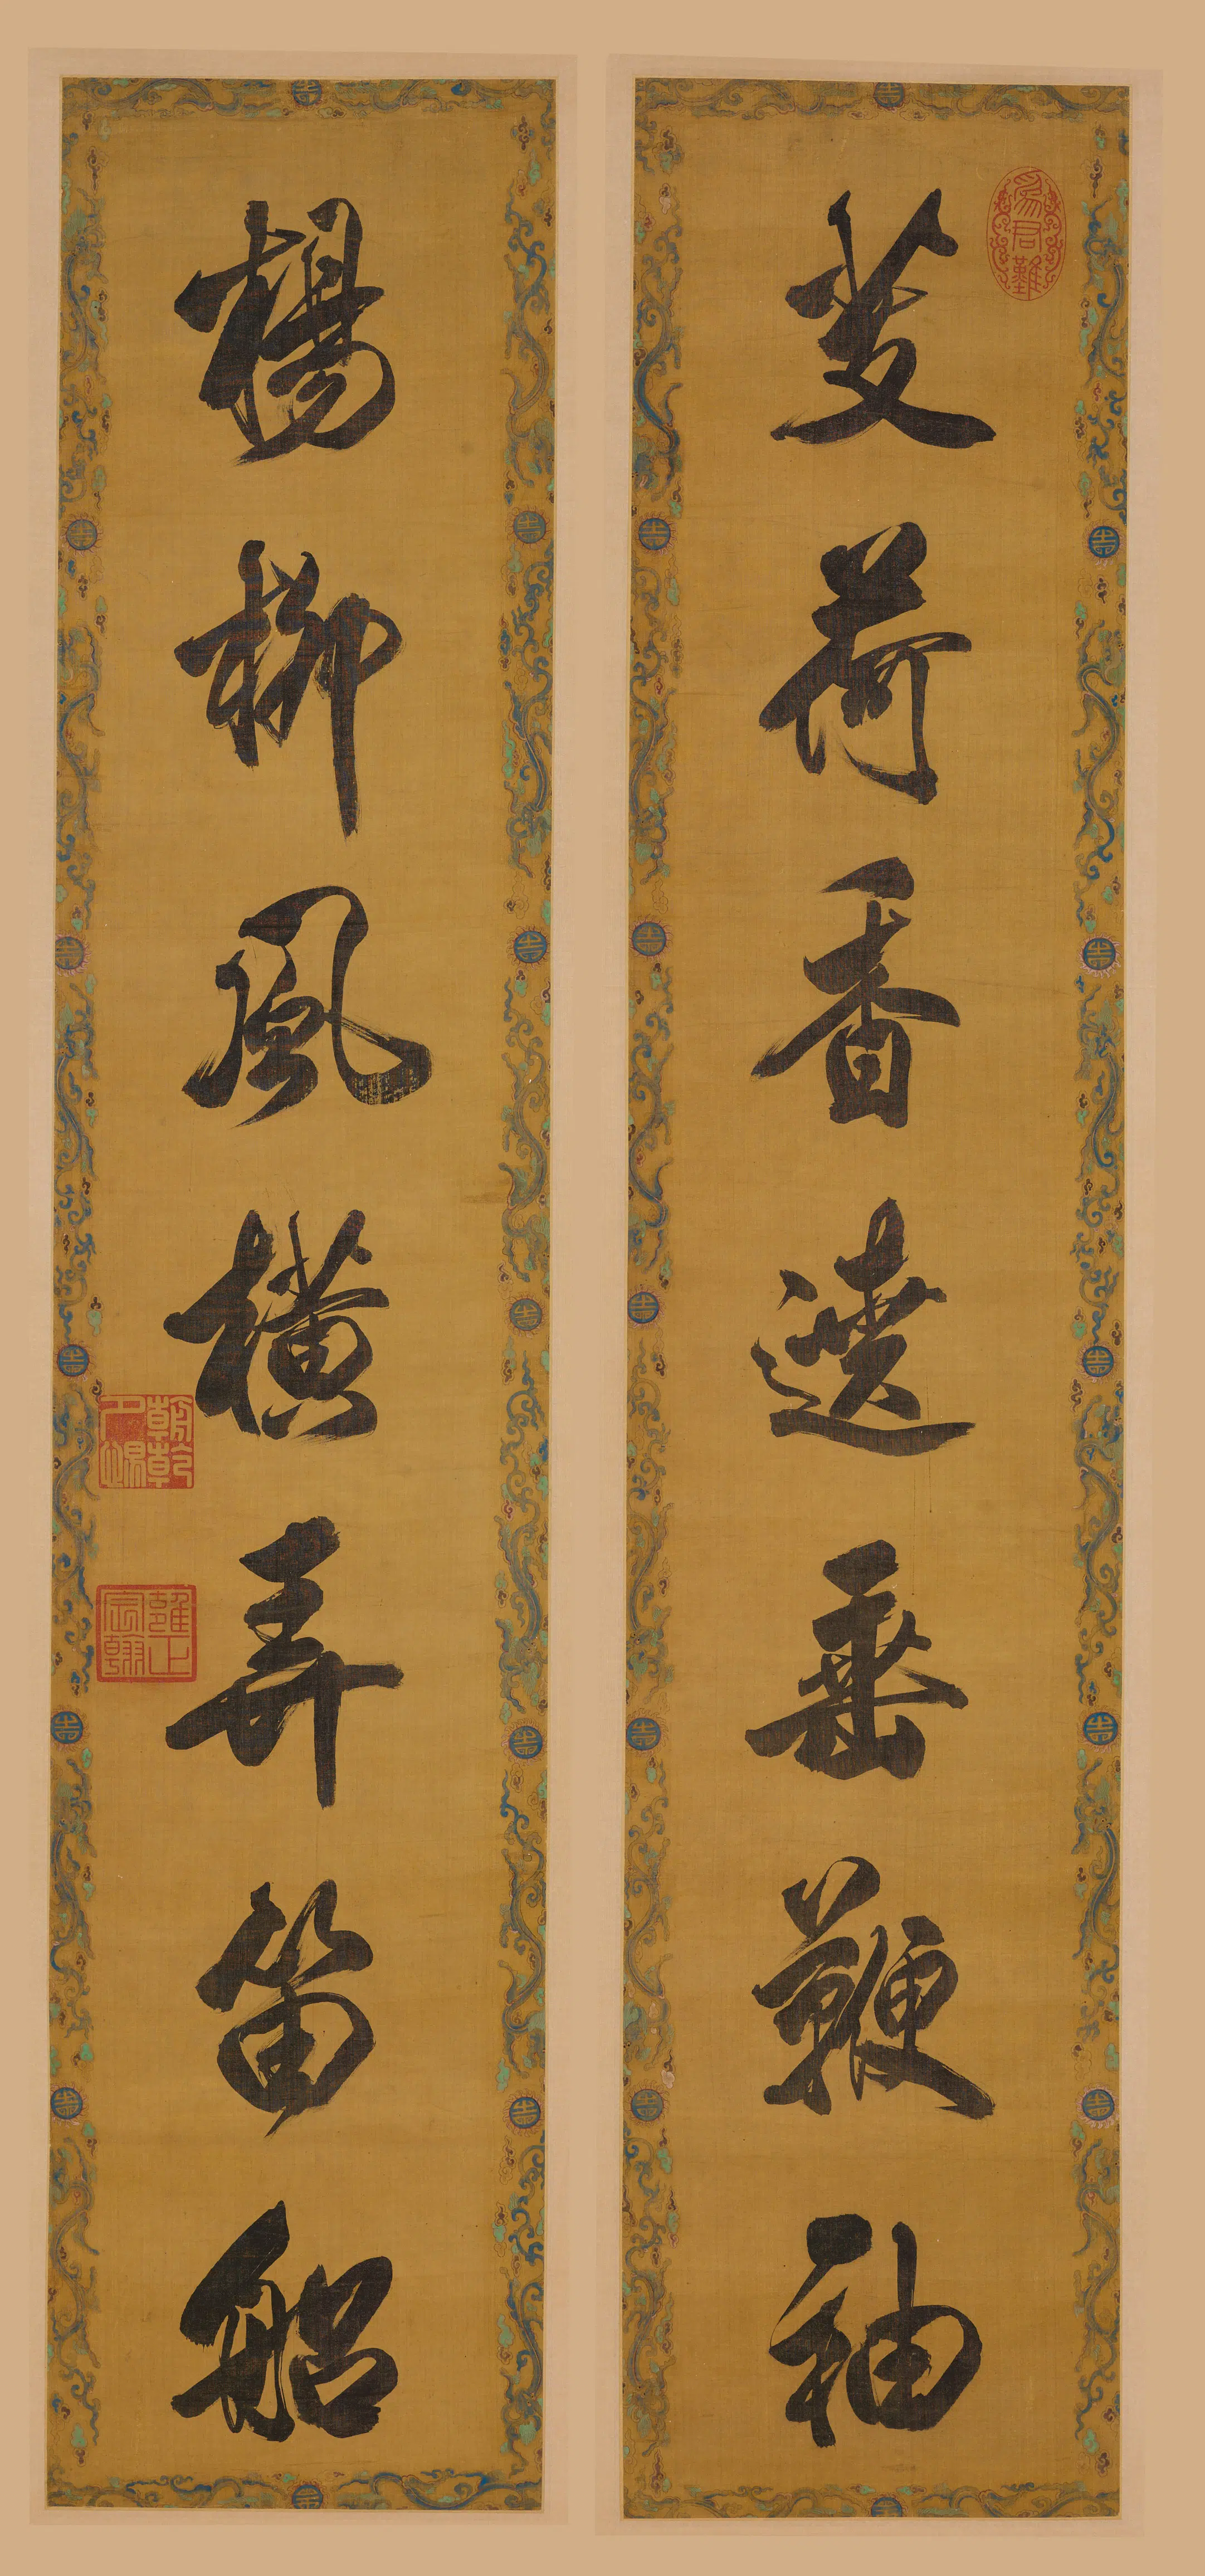 芰荷香遶垂鞭袖
楊柳風橫弄笛船
為君難
朝乾夕惕
雍正宸翰